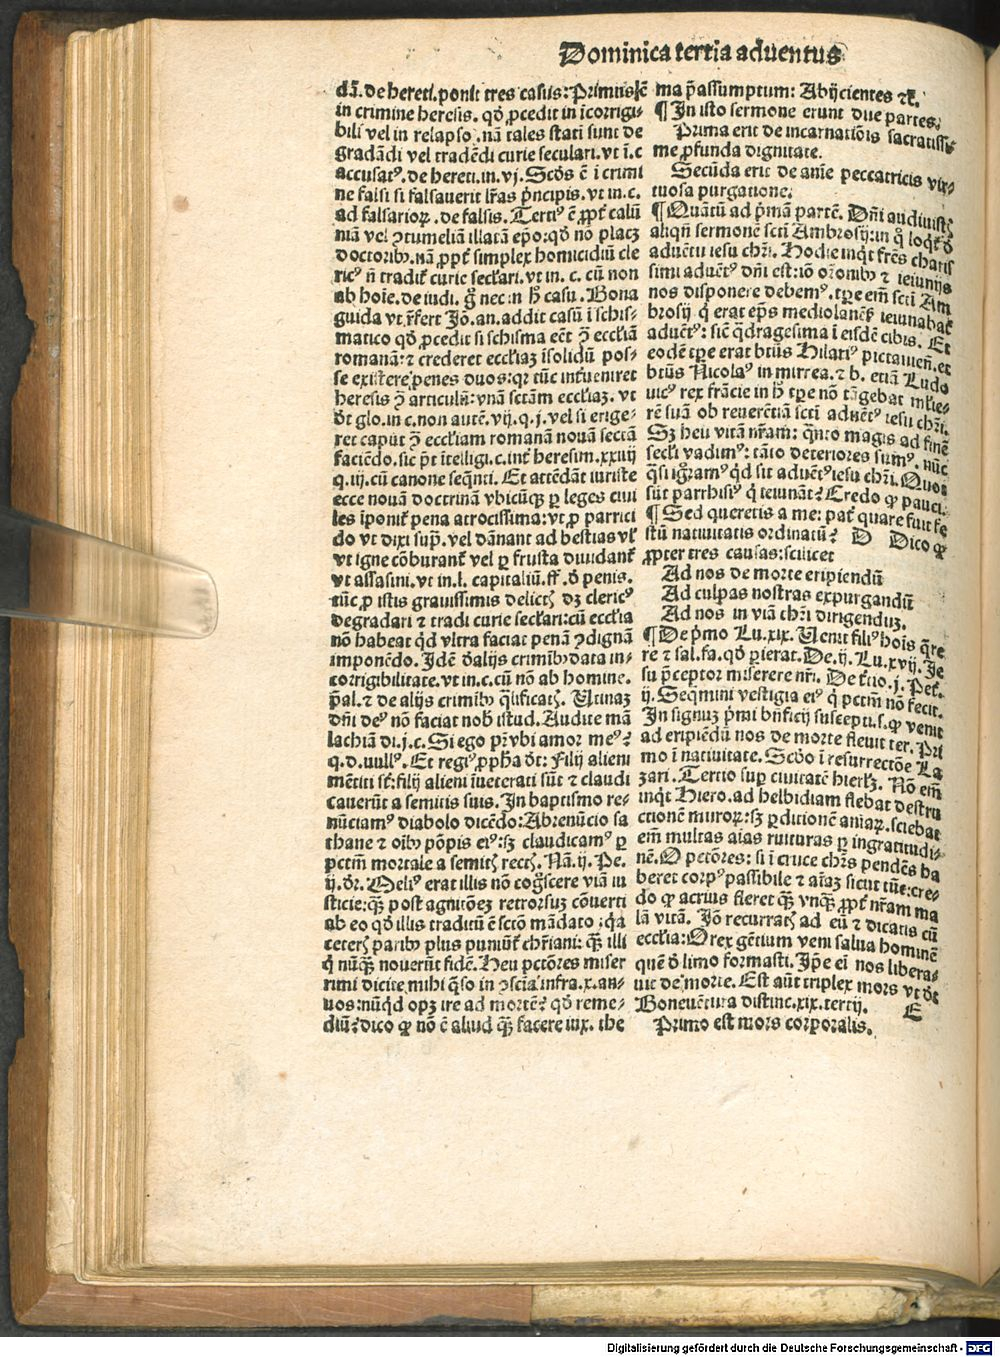 Dominica tertia aduentus
dā. de hereti. ponit tres casus: Primus ē
in crimine heresis. qđ ꝓcedit in īcorrigi-
bili vel in relapso. nā tales stati sunt de
gradādi vel tradēdi curie seculari. vt ī. c
accusatꝰ. de hereti. in. vj. Scđs ē ī crimi
ne falsi si falsauerit lr̄as pͥncipis. vt in. c.
ad falsarioꝝ. de falsis. Tertiꝰ ē ꝓpt̄ calū
niā vel ꝯtumeliā illatā ep̄o: qđ nō placꝫ
doctorib. nā ꝓpt̄ simplex homicidiū cle
ricꝰ n̄ tradit̄ curie secľari. vt in. c. cū non
ab hoīe. de iudi. gͦ nec in ħ casu. Bona
guida vt r̄fert Jō. an. addit casū ī schis-
matico qđ ꝓcedit si schisma eēt ꝯ̄ eccľiā
romanā: ⁊ crederet eccľiaꝫ īsolidū pos-
se existere penes duos: qꝛ tūc int̄ueniret
heresis ꝯ̄ articulū: vnā sctām eccľiaꝫ. vt
đt glo. in c. non autē. vij. q. j. vel si erige-
ret caput ꝯ̄ eccľiam romanā nouā sectā
faciēdo. sic pͣt ītelligi. c. int̄ heresim. xxiiij
q. iij. cū canone seqn̄ti. Et attēdāt iuriste
ecce nouā doctrinā vbicūqꝫ ꝑ leges ciui
les īponit̄ pena atrocissima: vt ꝓ parrici
do vt dixi supͣ. vel dānant ad bestias vľ
vt igne cōburant̄ vel ꝑ frusta diuidant̄
vt assasini. vt in. l. capitaliū. ff. đ penis.
tūc ꝓ istis grauissimis delictꝭ dꝫ clericꝰ
degradari ⁊ tradi curie secľari: cū eccľia
nō habeat qđ vltra faciat penā ꝯdignā
imponēdo. Jdē đ alijs crimībꝰ data in-
corrigibilitate. vt in. c. cū nō ab homine.
p̄al. ⁊ de alijs crimībꝰ qͣlificatꝭ. Utinaꝫ
dn̄i deꝰ nō faciat nobꝭ istud. Audite mā
lachiā di. j. c. Si ego pr̄ vbi amor meꝰ?
q. d. nullꝰ. Et regiꝰ ꝓpħa đt: Filij alieni
mētiti st̄: filij alieni īueterati sūt ⁊ claudi
cauerūt a semitis suis. Jn baptismo re-
nūciamꝰ diabolo dicēdo: Abrenūcio sa
thane ⁊ oībꝰ pōpis eiꝰ: sꝫ claudicamꝰ ꝑ
pctm̄ mortale a semitꝭ rectꝭ. Nā. ij. Pe.
ij. đr. Meliꝰ erat illis nō cogͦscere viā iu
sticie: qͣꝫ post agnitōeꝫ retrorsuꝫ cōuerti
ab eo qđ illis traditū ē sctō mādato: qꝛ
ceterꝭ paribꝰ plus puniūt̄ chr̄iani: qͣꝫ illi
qͥ nūqͣꝫ nouerūt fidē. Heu pctōres miser
rimi dicite mihi qͣso in ꝯsciā infra. x. an-
nos: nūqͥd opꝫ ire ad mortē? qđ reme-
diū? dico ꝙ nō ē aliud qͣꝫ facere iux. the
ma p̄assumptum: Abijcientes ⁊c̄.
¶ Jn isto sermone erunt due partes.
Prima erit de incarnatiōis sacratissi
me ꝓfunda dignitate.
Secūda erit de anīe peccatricis vir-
tuosa purgatione.
¶ Quātū ad pͥmā partē. Dn̄i audiuistꝭ
aliqn̄ sermonē scti Ambrosij: in qͦ loqt̄ đ
aduētu iesu chr̄i. Hodie inqͥt fr̄es charis
simi aduētꝰ dn̄i est: iō or̄onibꝰ ⁊ ieiunijs
nos disponere debemꝰ. tꝑe em̄ scti Am
brosij qͥ erat ep̄s mediolanēs̄ ieiunabat̄
aduētꝰ: sic qͣdragesima ī eisdē cibis. Et
eodē tꝑe erat bt̄us Hilariꝰ pictauien̄. et
bt̄us Nicolaꝰ in mirrea. ⁊ b. etiā Ludo
uicꝰ rex frācie in ħ tꝑe nō tāgebat mľie-
rē suā ob reuerētiā scti aduētꝰ iesu chr̄i.
Sꝫ heu vitā nr̄am: qͣnto magis ad finē
secľi vadimꝰ: tāto deteriores sumꝰ. nūc
qͣsi igͦramꝰ qͥd sit aduētꝰ iesu chr̄i. Quot
sūt parrhisiꝰ qͥ ieiunāt? Credo ꝙ pauci.
¶ Sed queretis a me: pat̄ quare fuit fe
stū natiuitatis ordinatū? D Dico ꝙ
ꝓpter tres causas: scilicet
Ad nos de morte eripiendū
Ad culpas nostras expurgandū
Ad nos in viā chr̄i dirigenduꝫ.
¶ De pͥmo Lu. xix. Venit filiꝰ hoīs qͣre
re ⁊ sal. fa. qđ ꝑierat. De. ij. Lu. xvij. Je
su p̄ceptor miserere nr̄i. De t̄tio. j. Pet̄.
ij. Seqͣmini vestigia eiꝰ qͥ pctm̄ nō fecit.
Jn signuꝫ pͥmi bn̄ficij suscepti. s. ꝙ venit
ad eripiēdū nos de morte fleuit ter. Pri
mo ī natiuitate. Scđo ī resurrectōe La
zari. Tertio suꝑ ciuitatē hierľꝫ. Nō em̄
inqͥt Hiero. ad helbidiam flebat destru
ctionē muroꝝ: sꝫ ꝑditionē aīaꝝ. sciebat
em̄ multas aīas ruituras ꝑ ingratitudi-
nē. O pctōres: si ī cruce chr̄s pendēs ha
beret corpꝰ passibile ⁊ aīaꝫ sicut tūc: cre-
do ꝙ acrius fleret qͣꝫ vnqͣꝫ ꝓpt̄ nr̄am ma
lā vitā. Jō recurratꝭ ad eū ⁊ dicatis cū
eccľia: O rex gētium veni salua hominē
quē đ limo formasti. Jpse ei nos libera-
uit de morte. Est aūt triplex mors vt đt
Boneuētura distinc. xix. tertij. E
Primo est mors corporalis.
Digitalisierung gefördert durch die Deutsche Forschungsgemeinschaft - DFG